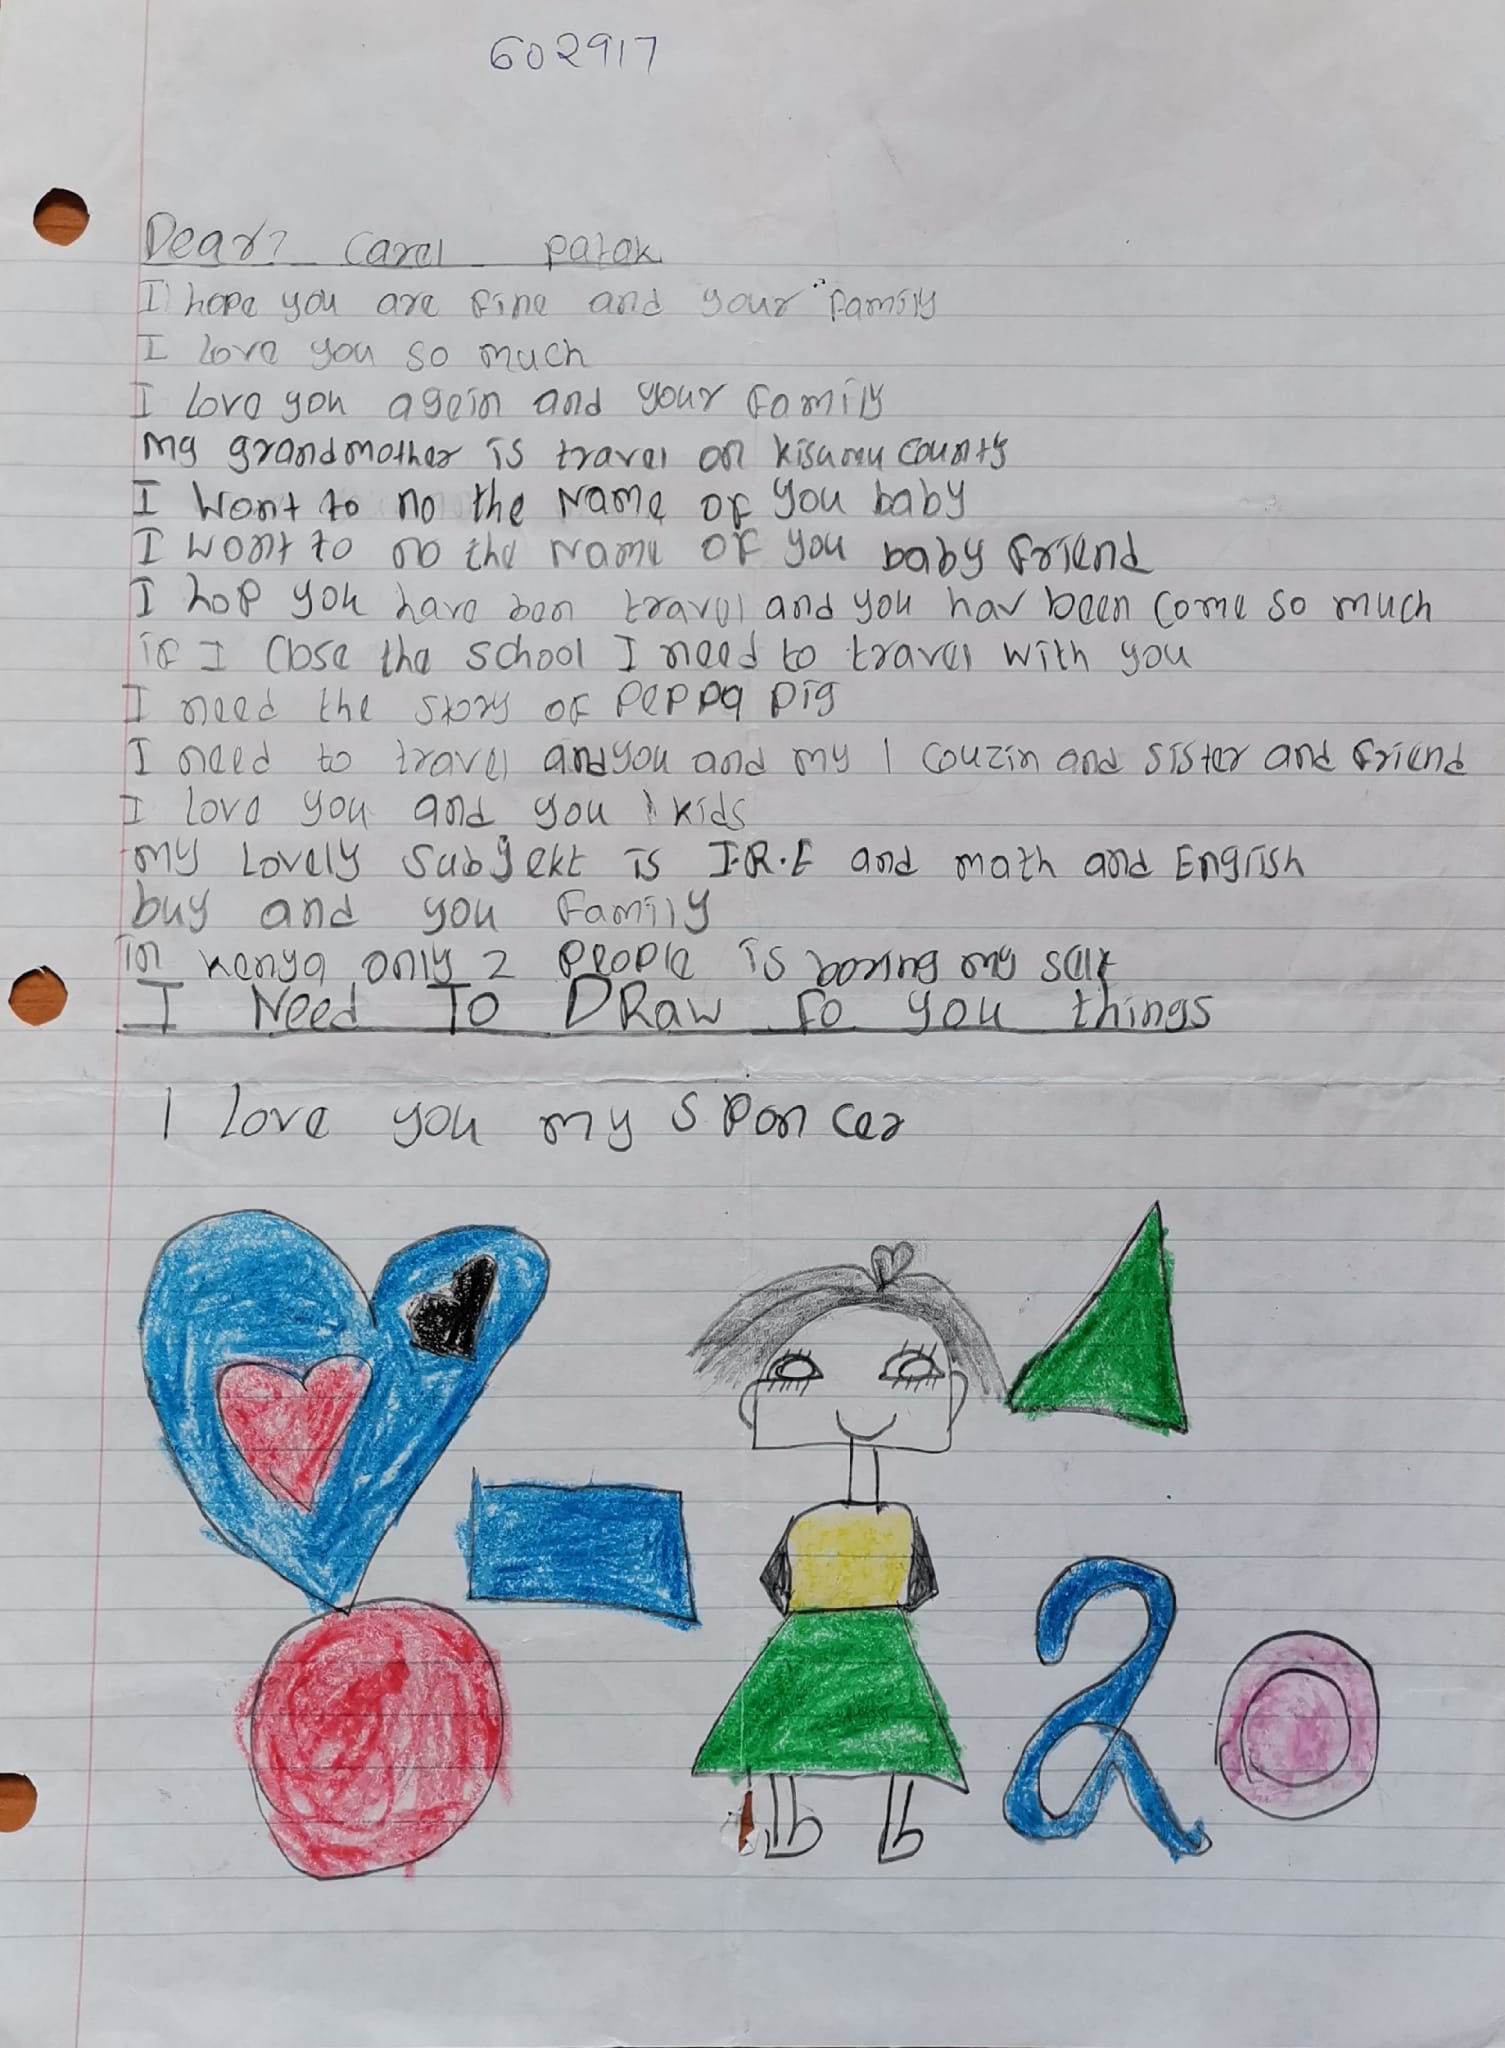 602917
Dear? Carol Patak
I hope you are fine and your family
I love you so much
I love you agein and your family
my grandmother is travel on kisumu county
I wont to no the Name of you baby
I wont to no the Name of you baby friend
I hop you have ben travel and you hav been come so much
if I close the school I need to travel with you
I need the story of Peppa pig
I need to travel and you and my 1 couzin and sister and friend
I love you and you kids
my lovely subjekt is I.R.E and math and English
buy and you family
in kenya only 2 people is boring my self
I Need To DRaw fo you things
I love you my sponcer
2